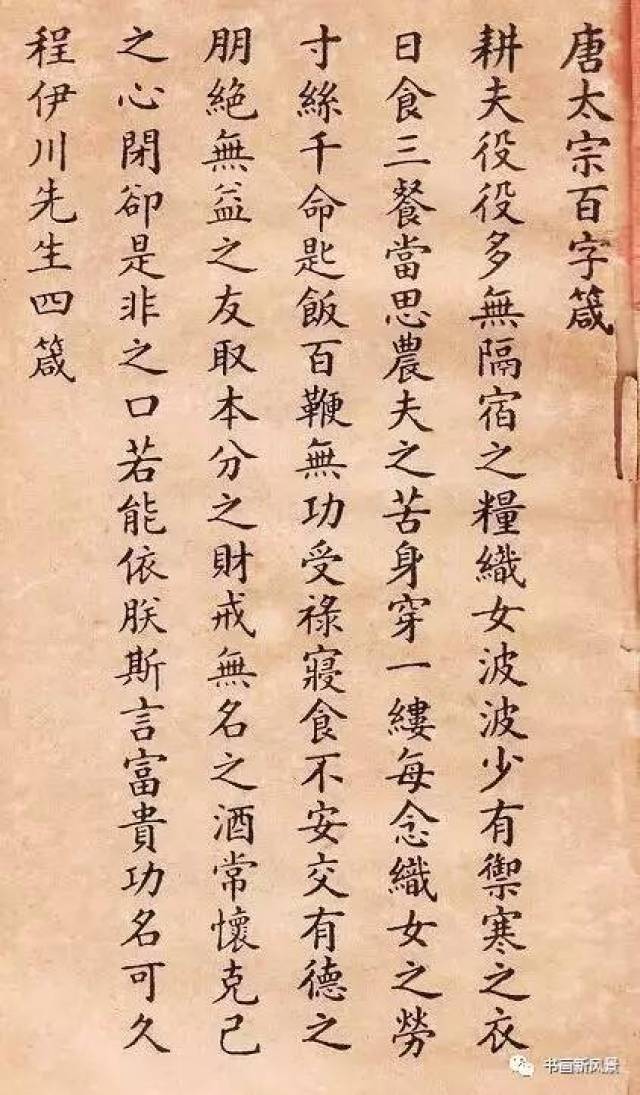 唐太宗百字箴
耕夫役役多無隔宿之糧織女波波少有禦寒之衣
日食三餐當思農夫之苦身穿一縷每念織女之勞
寸絲千命匙飯百鞭無功受祿寢食不安交有德之
朋絕無益之友取本分之財戒無名之酒常懷克己
之心閉卻是非之口若能依朕斯言富貴功名可久
程伊川先生四箴
书画新风景